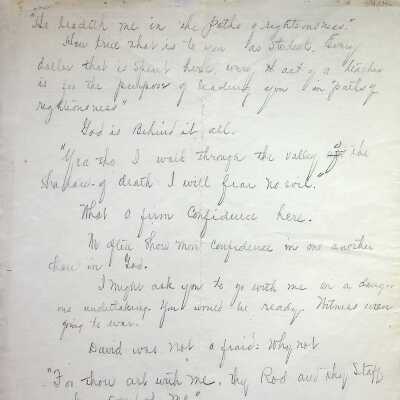 "He leadeth me in the paths of rightousness."
How true that is to you as Student. Every
dollar that is spent here, every act of a teacher
is for the purpose of leading you in paths of
rightiousness"
God is Behind it all.
"Yea tho I walk through the valley of the
shadow of death I will fear no evil."
What a firm confidence here.
We often show more confidence in one another
than in God.
I might ask you to go with me on a danger-
ous undertaking. You would be ready. Witness men
going to war.
David was not afraid. Why not
"For thou art with me, thy Rod and thy Staff
comfort me"